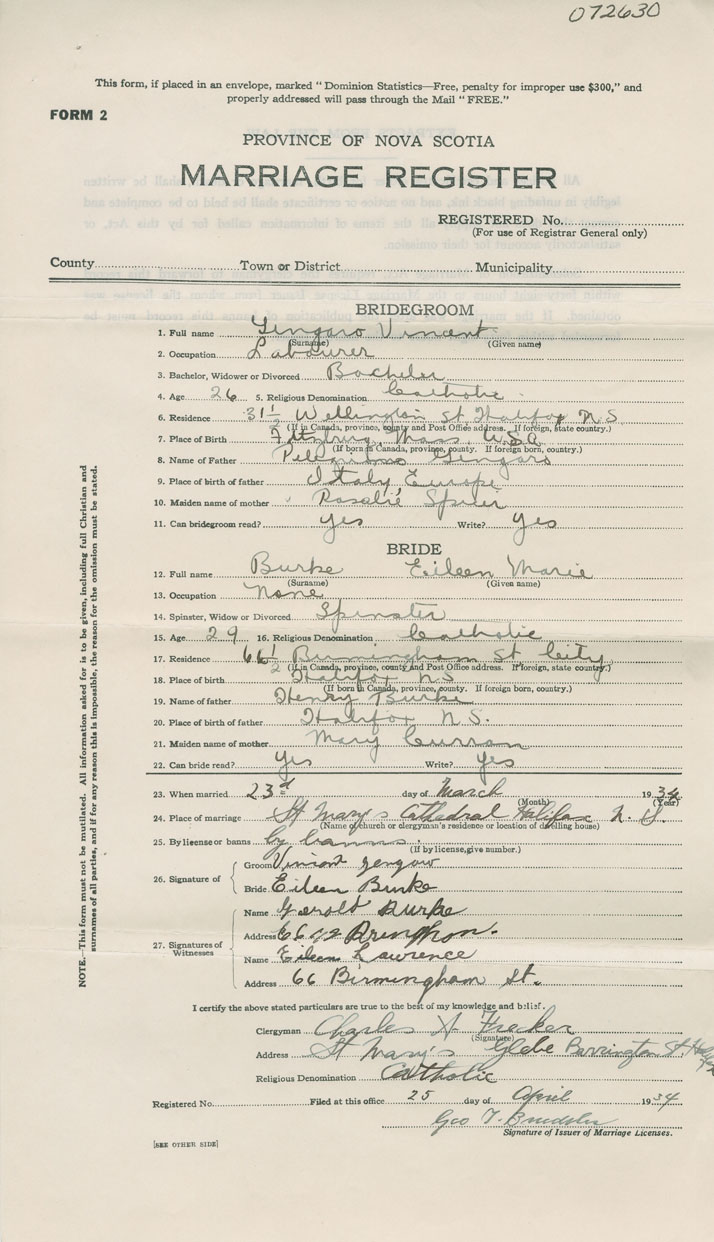 072630
This form, if placed in an envelope, marked "Dominion Statistics—Free, penalty for improper use $300," and
properly addressed will pass through the Mail "FREE."
FORM 2
PROVINCE OF NOVA SCOTIA
MARRIAGE REGISTER
REGISTERED No.
(For use of Registrar General only)
County Town or District Municipality
BRIDEGROOM
1. Full name Gengaro Vincent
(Surname) (Given name)
2. Occupation Labourer
3. Bachelor, Widower or Divorced Bachelor
4. Age 26 5. Religious Denomination Catholic
6. Residence 31½ Wellington St Halifax N.S
(If in Canada, province, county and Post Office address. If foreign, state country.)
7. Place of Birth Fitzburg, Mass, U.S.A
(If born in Canada, province, county. If foreign born, country.)
8. Name of Father Gengaro
9. Place of birth of father Italy, Europe
10. Maiden name of mother Rosalie
11. Can bridegroom read? yes Write? yes
BRIDE
12. Full name Burke Eileen Marie
(Surname) (Given name)
13. Occupation None
14. Spinster, Widow or Divorced Spinster
15. Age 29 16. Religious Denomination Catholic
17. Residence 66½ Birmingham St City
(If in Canada, province, county and Post Office address. If foreign, state country.)
18. Place of birth Halifax N.S
(If born in Canada, province, county. If foreign born, country.)
19. Name of father Henry Burke
20. Place of birth of father Halifax N.S.
21. Maiden name of mother Mary Curran
22. Can bride read? Yes Write? Yes
23. When married 23rd day of March 1934
(Month) (Year)
24. Place of marriage St Mary's Cathedral Halifax N.S.
(Name of church or clergyman's residence or location of dwelling house)
25. By license or banns by banns.
(If by license, give number.)
26. Signature of
Groom Vincent
Bride Eileen Burke
27. Signatures of Witnesses
Name Gerald Burke
Address
Name Eileen Lawrence
Address 66 Birmingham St.
I certify the above stated particulars are true to the best of my knowledge and belief.
Clergyman Charles A Frecker
(Signature)
Address St Mary's Glebe Barrington St.
Religious Denomination Catholic
Registered No. Filed at this office 25 day of April 1934
Geo T.
Signature of Issuer of Marriage Licenses.
[SEE OTHER SIDE]
NOTE.—This form must not be mutilated. All information asked for is to be given, including full Christian and
surnames of all parties, and if for any reason this is impossible, the reason for the omission must be stated.